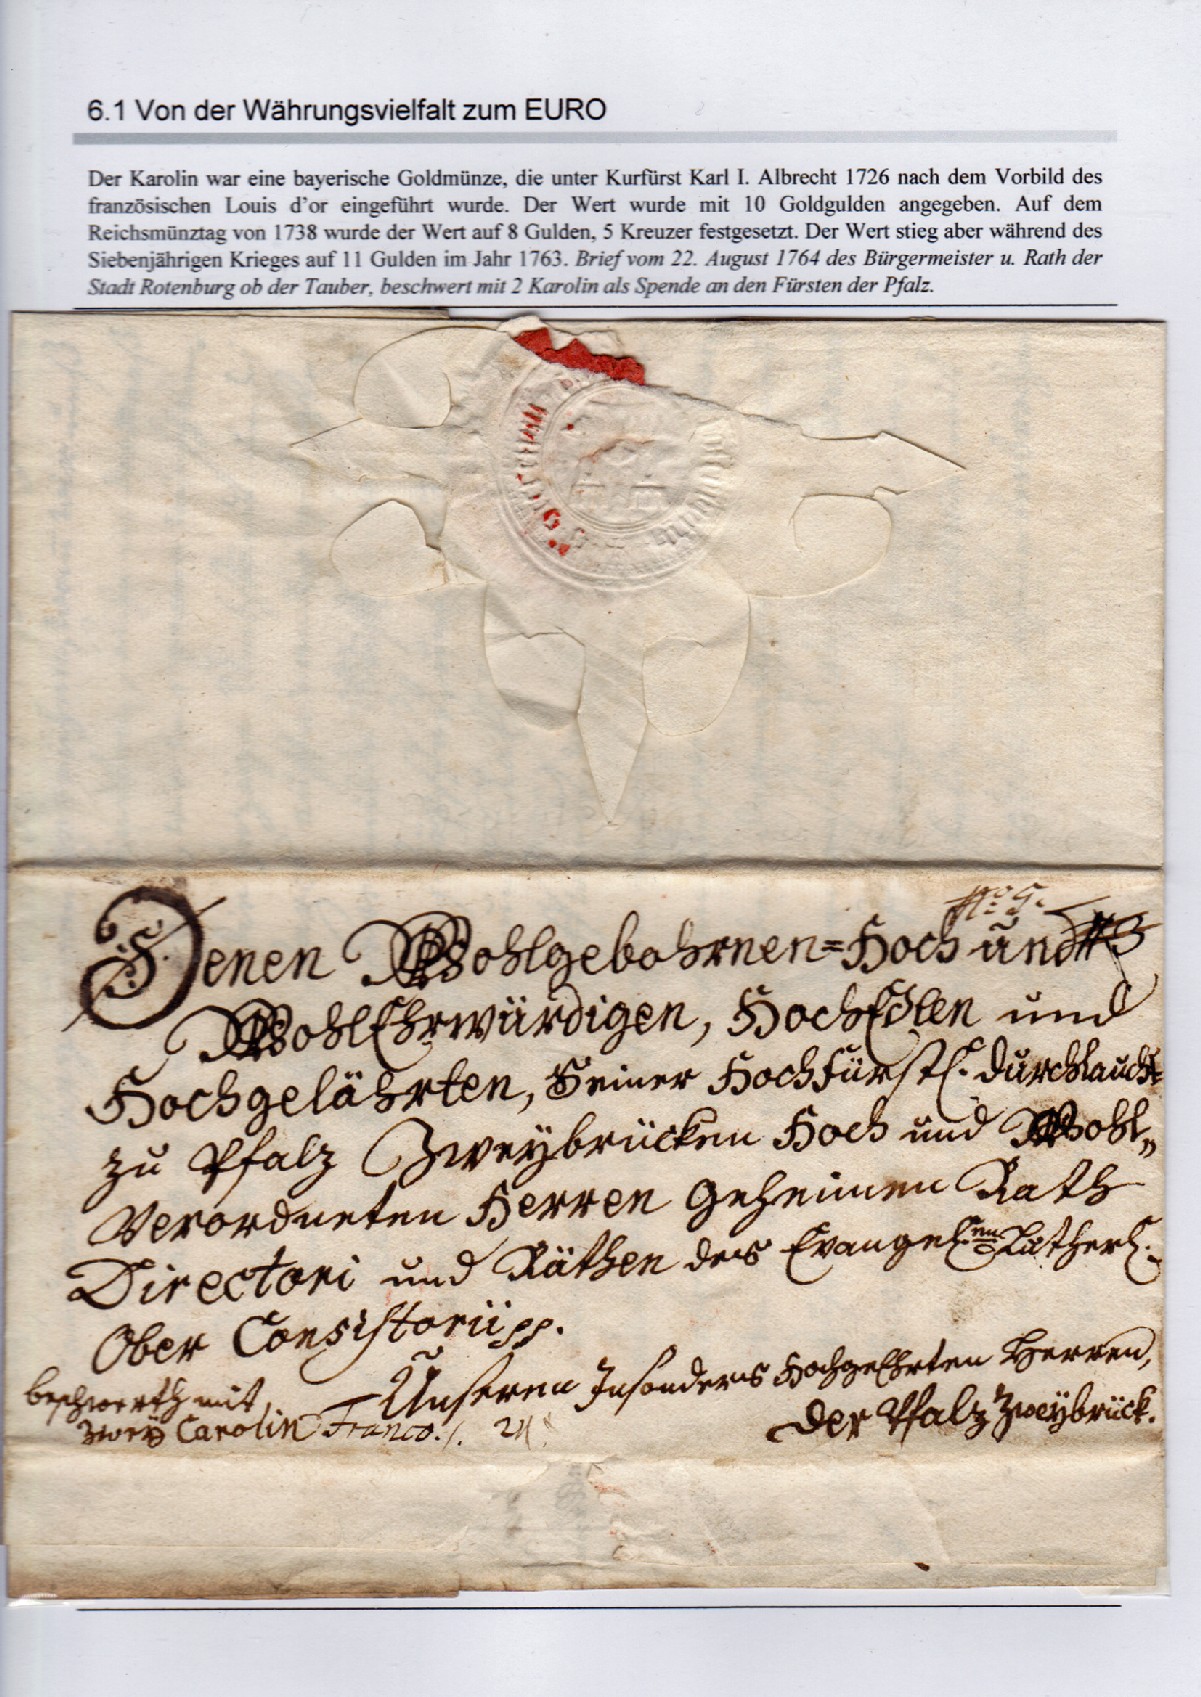 6.1 Von der Währungsvielfalt zum EURO
Der Karolin war eine bayerische Goldmünze, die unter Kurfürst Karl I. Albrecht 1726 nach dem Vorbild des
französischen Louis d’or eingeführt wurde. Der Wert wurde mit 10 Goldgulden angegeben. Auf dem
Reichsmünztag von 1738 wurde der Wert auf 8 Gulden, 5 Kreuzer festgesetzt. Der Wert stieg aber während des
Siebenjährigen Krieges auf 11 Gulden im Jahr 1763. Brief vom 22. August 1764 des Bürgermeister u. Rath der
Stadt Rotenburg ob der Tauber, beschwert mit 2 Karolin als Spende an den Fürsten der Pfalz.
No: 9.
Denen Wohlgebohrnen=Hoch und
WohlEhrwürdigen, HochEdlen und
Hochgelährten, Seiner Hochfürstl. Durchlaucht
zu Pfalz Zweybrücken Hoch und Wohl„
Verordneten Herren Geheimen Rath
Directori und Räthen des Evangel:en Lutherl:
Ober Consistorii pp.
Unseren Insonders Hochgeehrten Herren,
beschwerth mit
zwey Carolin Franco.
der Pfalz Zweybrück.